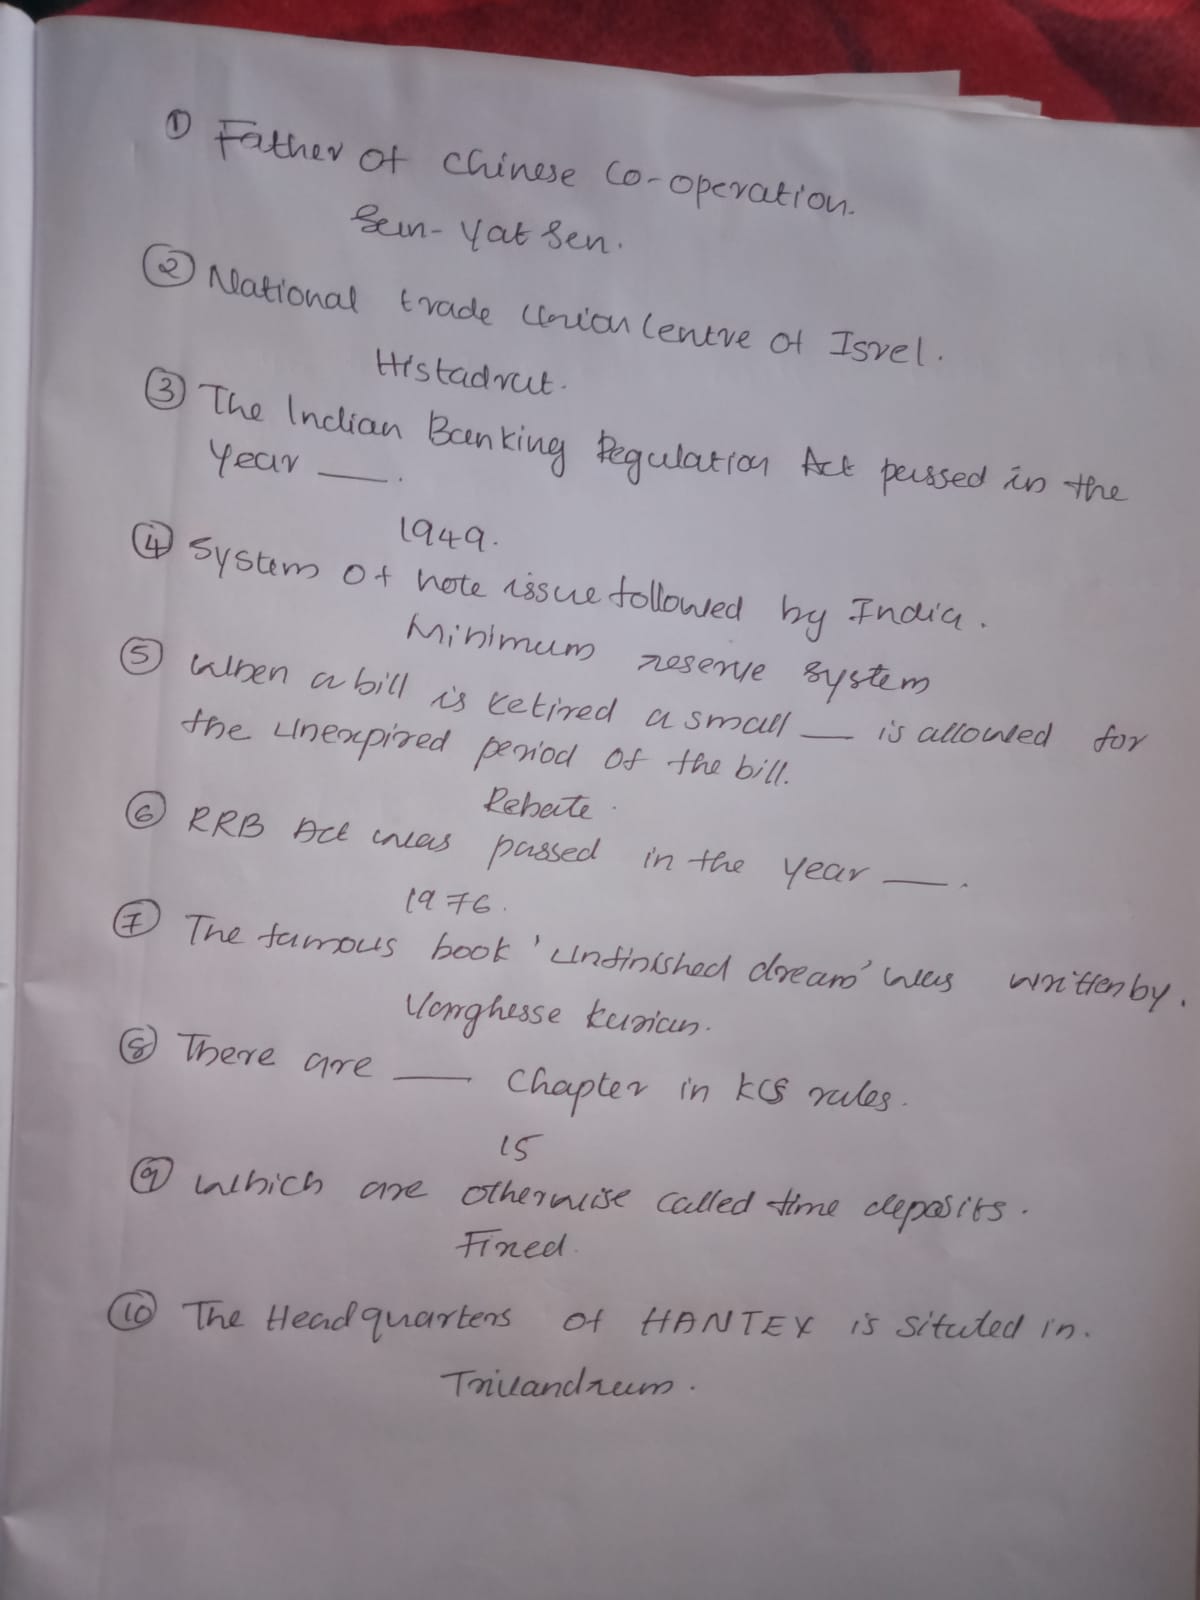 ① Father of Chinese Co-operation.
Sun-Yat Sen.
② National trade union Centre of Isrel.
Histadrut.
③ The Indian Banking Regulation Act passed in the
year __.
1949.
④ System of note issue followed by India.
Minimum reserve system
⑤ When a bill is retired a small __ is allowed for
the unexpired period of the bill.
Rebate.
⑥ RRB Act was passed in the year __.
1976.
⑦ The famous book 'unfinished dream' was written by.
Varghesse kurian.
⑧ There are __ Chapter in KCS rules.
15
⑨ Which are otherwise called time deposits.
Fixed.
⑩ The Headquarters of HANTEX is situted in.
Trivandrum.